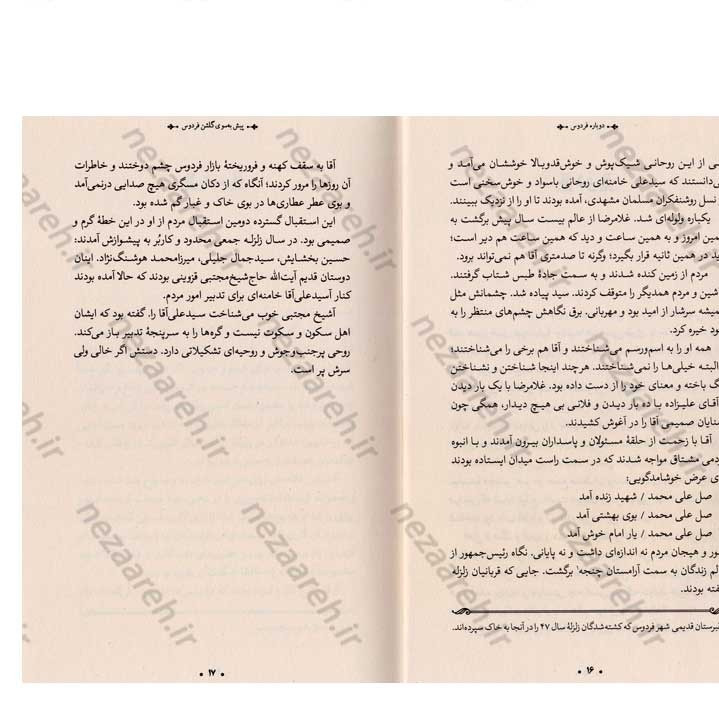 دوباره فردوس
از این روحانی شیک‌پوش و خوش‌قدوبالا خوششان می‌آمد و
می‌دانستند که سیدعلی خامنه‌ای روحانی باسواد و خوش‌سخنی است
نسل روشنفکران مسلمان مشهدی، آمده بودند تا او را از نزدیک ببینند.
یکباره ولوله‌ای شد. غلامرضا از عالم بیست سال پیش برگشت به
همین امروز و به همین ساعت و دید که همین ساعت هم دیر است؛
در همین ثانیه قرار بگیرد؛ وگرنه تا صدمتری آقا هم نمی‌تواند برود.
مردم از زمین کنده شدند و به سمت جادهٔ طبس شتاب گرفتند.
ماشین و مردم همدیگر را متوقف کردند. سید پیاده شد. چشمانش مثل
همیشه سرشار از امید بود و مهربانی. برق نگاهش چشم‌های منتظر را به
خود خیره کرد.
همه او را به اسم‌ورسم می‌شناختند و آقا هم برخی را می‌شناختند؛
البته خیلی‌ها را نمی‌شناختند. هرچند اینجا شناختن و نشناختن
رنگ باخته و معنای خود را از دست داده بود. غلامرضا با یک بار دیدن
آقای علیزاده با ده بار دیدن و فلانی بی هیچ دیدار، همگی چون
آشنایان صمیمی آقا را در آغوش کشیدند.
آقا با زحمت از حلقهٔ مسئولان و پاسداران بیرون آمدند و با انبوه
مردمی مشتاق مواجه شدند که در سمت راست میدان ایستاده بودند
برای عرض خوشامدگویی:
صل علی محمد / شهید زنده آمد
صل علی محمد / بوی بهشتی آمد
صل علی محمد / یار امام خوش آمد
شور و هیجان مردم نه اندازه‌ای داشت و نه پایانی. نگاه رئیس‌جمهور از
عالم زندگان به سمت آرامستان چنجه¹ برگشت. جایی که قربانیان زلزله
خفته بودند.
قبرستان قدیمی شهر فردوس که کشته‌شدگان زلزلهٔ سال ۴۷ را در آنجا به خاک سپرده‌اند.
۱۶
پیش به‌سوی گلشن فردوس
آقا به سقف کهنه و فروریختهٔ بازار فردوس چشم دوختند و خاطرات
آن روزها را مرور کردند؛ آنگاه که از دکان مسگری هیچ صدایی درنمی‌آمد
و بوی عطر عطاری‌ها در بوی خاک و غبار گم شده بود.
این استقبال گسترده دومین استقبال مردم از او در این خطهٔ گرم و
صمیمی بود. در سال زلزله جمعی محدود و کاربُر به پیشوازش آمدند:
حسین بخشایش، سیدجمال جلیلی، میرزامحمد هوشنگ‌نژاد. اینان
دوستان قدیم آیت‌الله حاج‌شیخ‌مجتبی قزوینی بودند که حالا آمده بودند
کنار آسیدعلی‌آقا خامنه‌ای برای تدبیر امور مردم.
آشیخ مجتبی خوب می‌شناخت سیدعلی‌آقا را. گفته بود که ایشان
اهل سکون و سکوت نیست و گره‌ها را به سرپنجهٔ تدبیر باز می‌کند.
روحی پرجنب‌وجوش و روحیه‌ای تشکیلاتی دارد. دستش اگر خالی ولی
سرش پر است.
۱۷
nezaareh.ir
nezaareh.ir
nezaareh.ir
nezaareh.ir
nezaareh.ir
nezaareh.ir
nezaareh.ir
nezaareh.ir